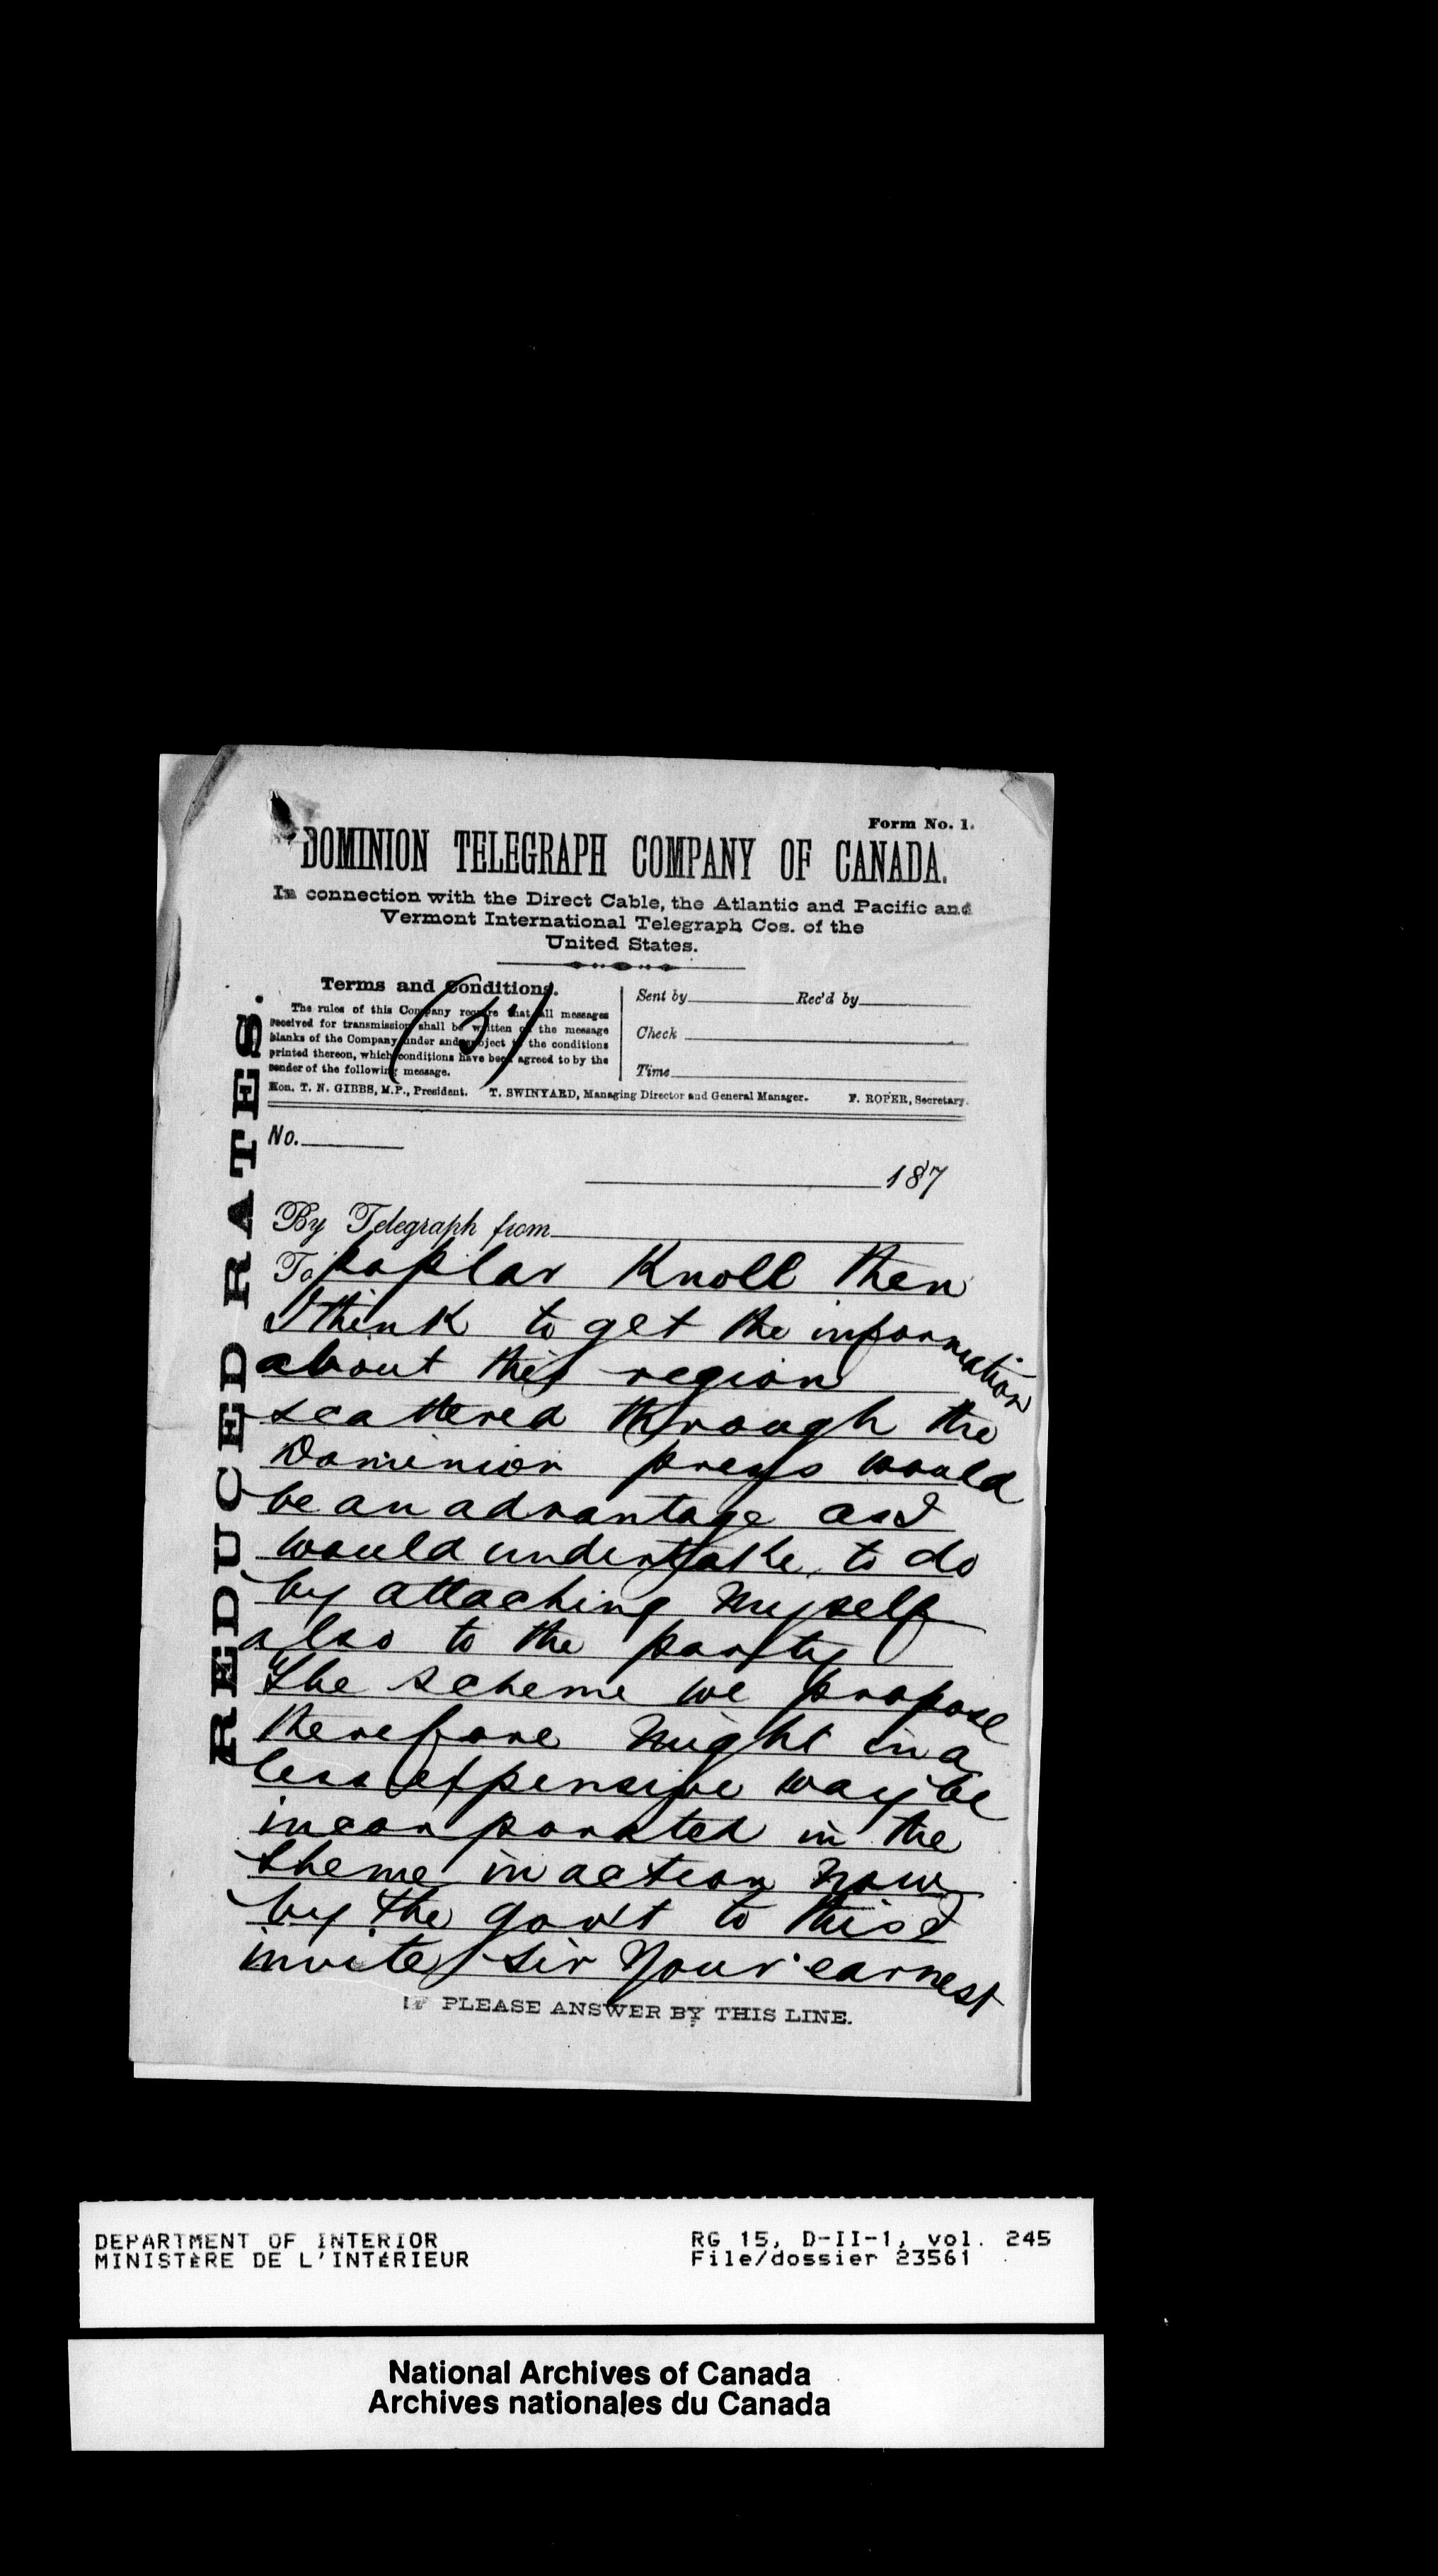 Form No. 1.
DOMINION TELEGRAPH COMPANY OF CANADA.
In connection with the Direct Cable, the Atlantic and Pacific and
Vermont International Telegraph Cos. of the
United States.
REDUCED RATES.
Terms and Conditions.
The rules of this Company require that all messages
received for transmission shall be written on the message
blanks of the Company under and subject to the conditions
printed thereon, which conditions have been agreed to by the
sender of the following message.
(5)
Sent by Rec'd by
Check
Time
Hon. T. N. GIBBS, M.P., President. T. SWINYARD, Managing Director and General Manager. F. ROPER, Secretary.
No.
187
By Telegraph from
To poplar Knoll then
I think to get the information
about this region
scattered through the
Dominion press would
be an advantage as I
would undertake to do
by attaching myself
also to the party
the scheme we propose
therefore might in a
less expensive way be
incorporated in the
theme in action now
by the govt to this I
invite Sir Your earnest
PLEASE ANSWER BY THIS LINE.
DEPARTMENT OF INTERIOR
MINISTÈRE DE L'INTÉRIEUR
RG 15, D-II-1, vol. 245
File/dossier 23561
National Archives of Canada
Archives nationales du Canada